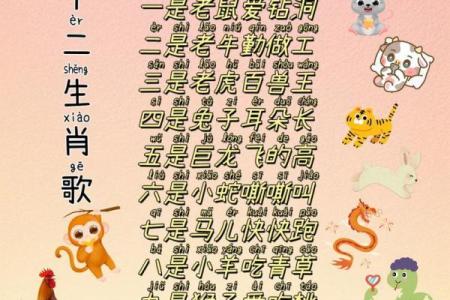 èr
二
shēng
生
xiào
肖
gē
歌
一是老鼠爱钻洞
èr shì lǎo niú qín zuò gōng
二是老牛勤做工
sān shì lǎo hǔ bǎi shòu wáng
三是老虎百兽王
sì shì tù zǐ ěr duǒ cháng
四是兔子耳朵长
wǔ shì jù lóng fēi de gāo
五是巨龙飞的高
liù shì xiǎo shé sī sī jiào
六是小蛇嘶嘶叫
qī shì mǎ ér kuài kuài pǎo
七是马儿快快跑
bā shì xiǎo yáng chī qīng cǎo
八是小羊吃青草
jiǔ shì hóu zi ài chī táo
九是猴子爱吃桃